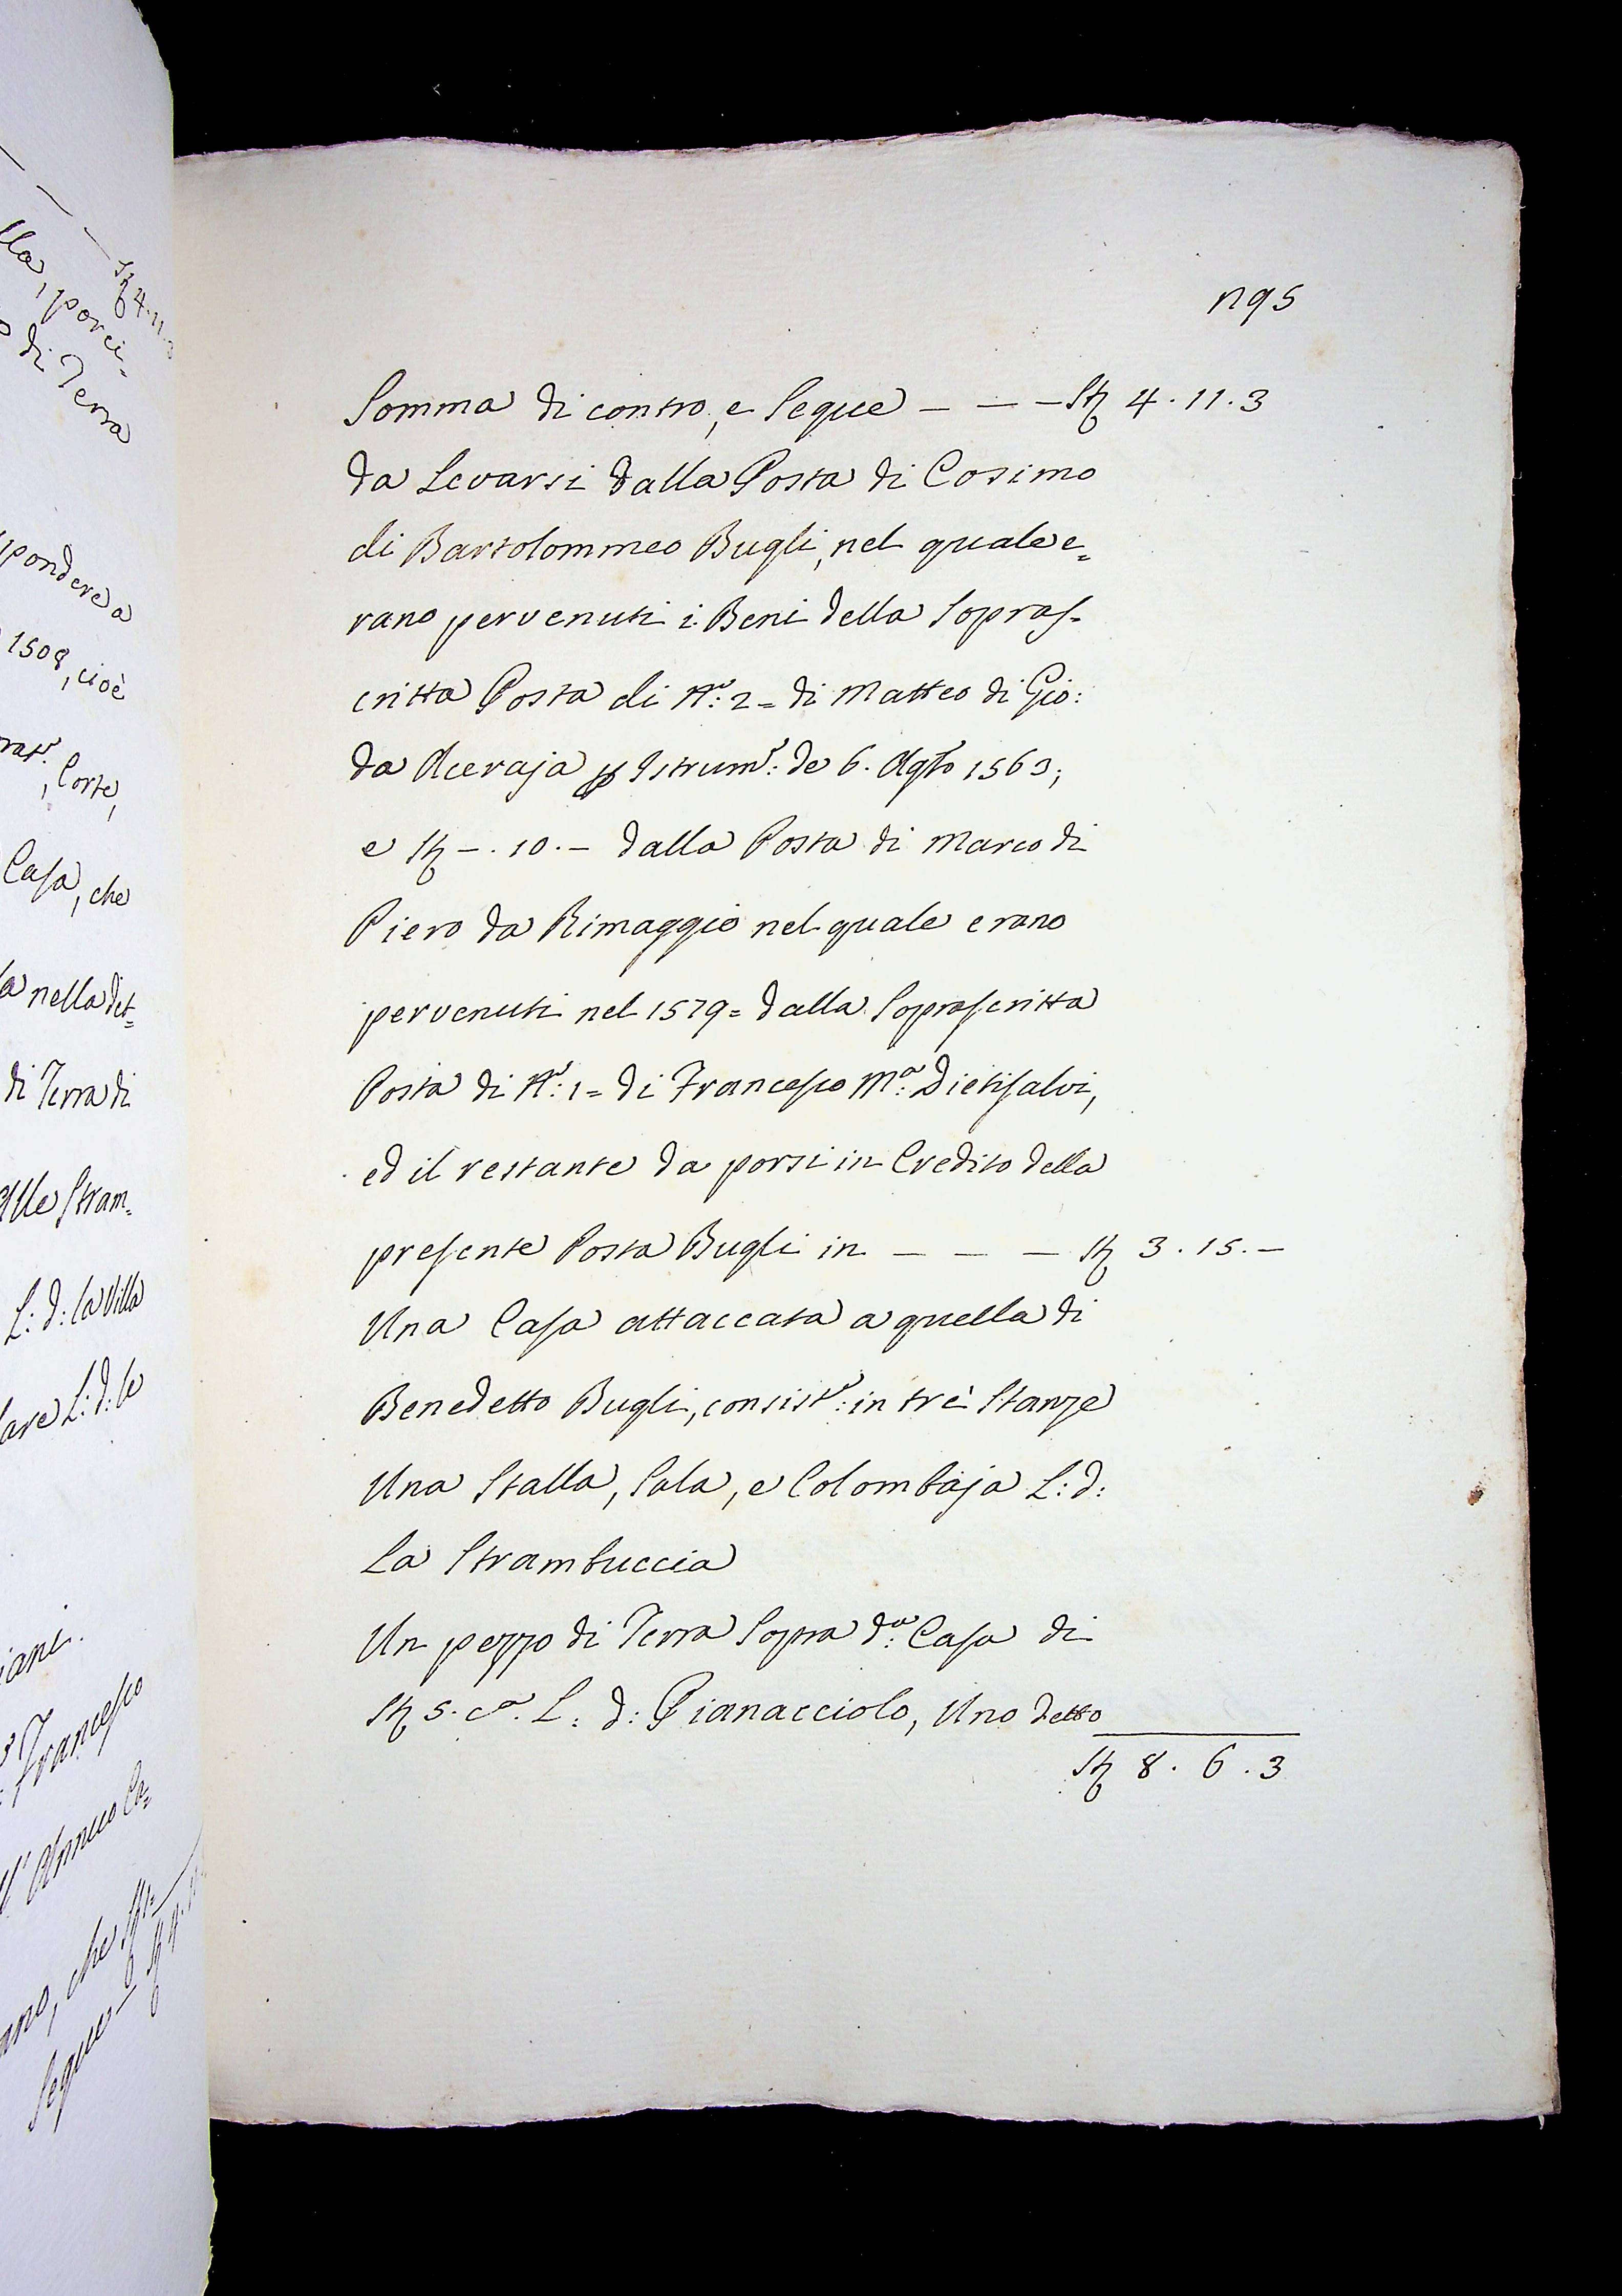 lla, porci-
di Terra
spondere a
1508, cioè
Corte,
Casa, che
nella det=
di Terra di
alle Stram=
L: d: la Villa
L: d: le
iani.
Francesco
Annuo Ca=
che
Segue
n95
Somma di contro, e Segue – – – St 4 . 11 . 3
da Levarsi dalla Posta di Cosimo
di Bartolommeo Bugli, nel quale e=
rano pervenuti i Beni della Sopras-
critta Posta di N.º 2 = di Matteo di Gio:
da Aceraja p Istrum.º: de 6. Agto 1563;
e St – . 10 . – dalla Posta di Marco di
Piero da Rimaggio nel quale erano
pervenuti nel 1579 = dalla Soprascritta
Posta di N.º: 1 = di Francesco M.a: Dietisalvi,
ed il restante da porsi in Credito della
presente Posta Bugli in – – – St 3 . 15 . –
Una Casa attaccata a quella di
Benedetto Bugli, consist.e: in trè Stanze
Una Stalla, Sala, e Colombaja L: d:
La Strambuccia
Un pezzo di Terra Sopra d.a: Casa di
St 5. c.a L: d: Pianacciolo, Uno detto
St 8 . 6 . 3